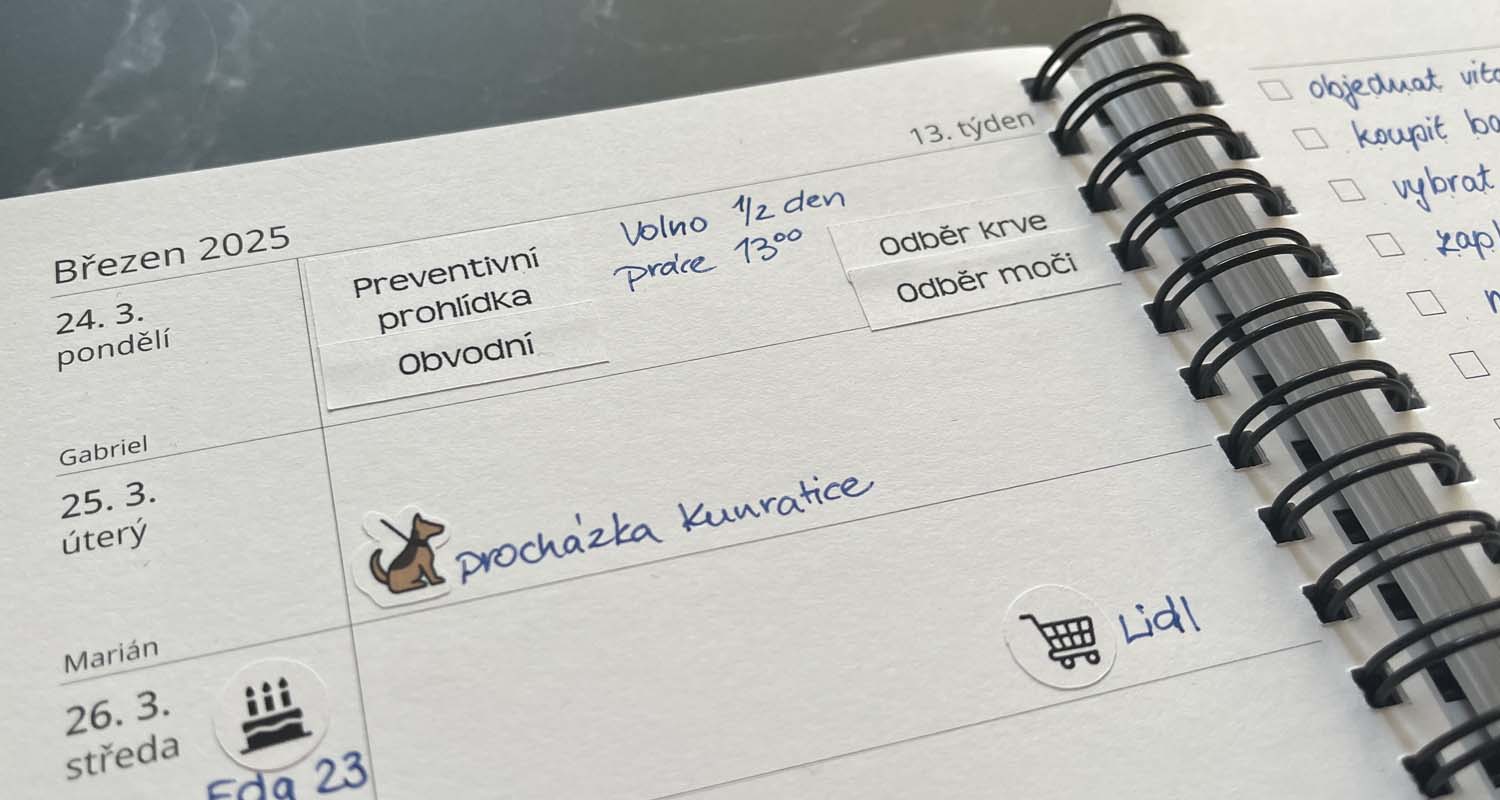 13. týden
Březen 2025
24. 3.
pondělí
Preventivní
prohlídka
Obvodní
Volno 1/2 den
práce 13⁰⁰
Odběr krve
Odběr moči
Gabriel
25. 3.
úterý
procházka Kunratice
Lidl
Marián
26. 3.
středa
Eda 23
objednat
koupit
vybrat